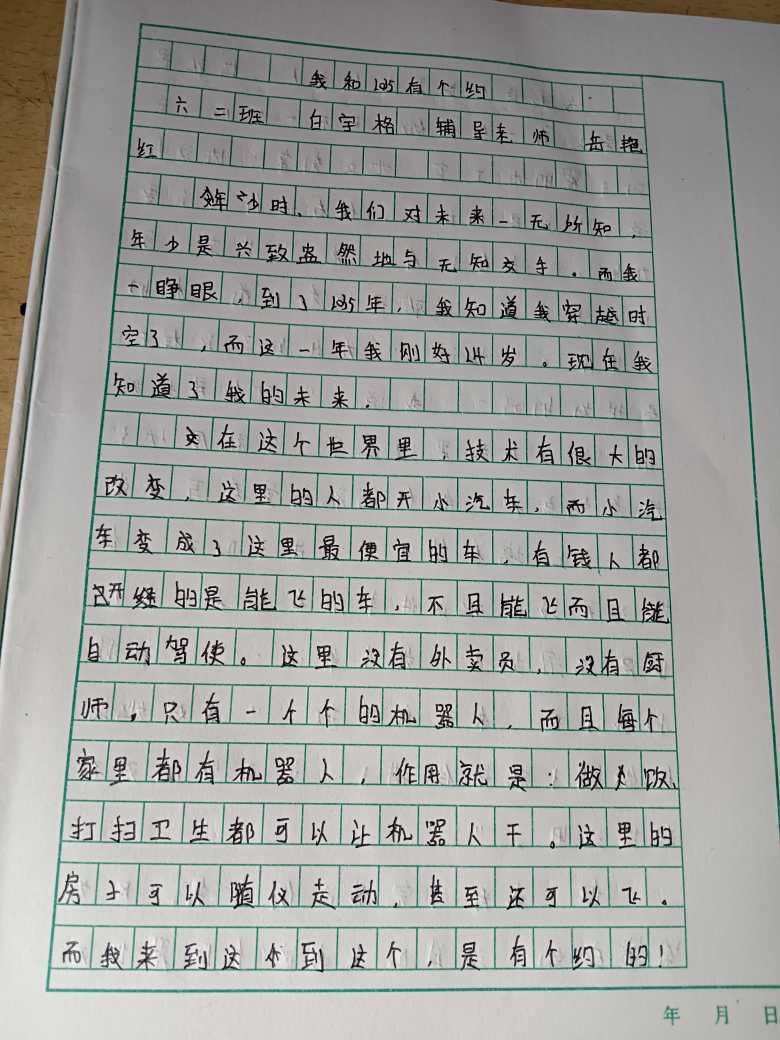 我和1035有个约
六二班 白宇格 辅导老师 岳艳
红
年少时、我们对未来一无所知，
年少是兴致盎然地与无知交手。而我
一睁眼，到了1035年，我知道我穿越时
空了，而这一年我刚好24岁。现在我
知道了我的未来．
在这个世界里，技术有很大的
改变，这里的人都开小汽车，而小汽
车变成了这里最便宜的车，有钱人都
已经的是能飞的车，不且能飞而且能
自动驾使。这里没有外卖员，没有厨
师，只有一个个的机器人，而且每个
家里都有机器人，作用就是：做饭、
打扫卫生都可以让机器人干。这里的
房子可以随仪走动，甚至还可以飞。
而我来到这个到这个，是有个约的！
年 月 日